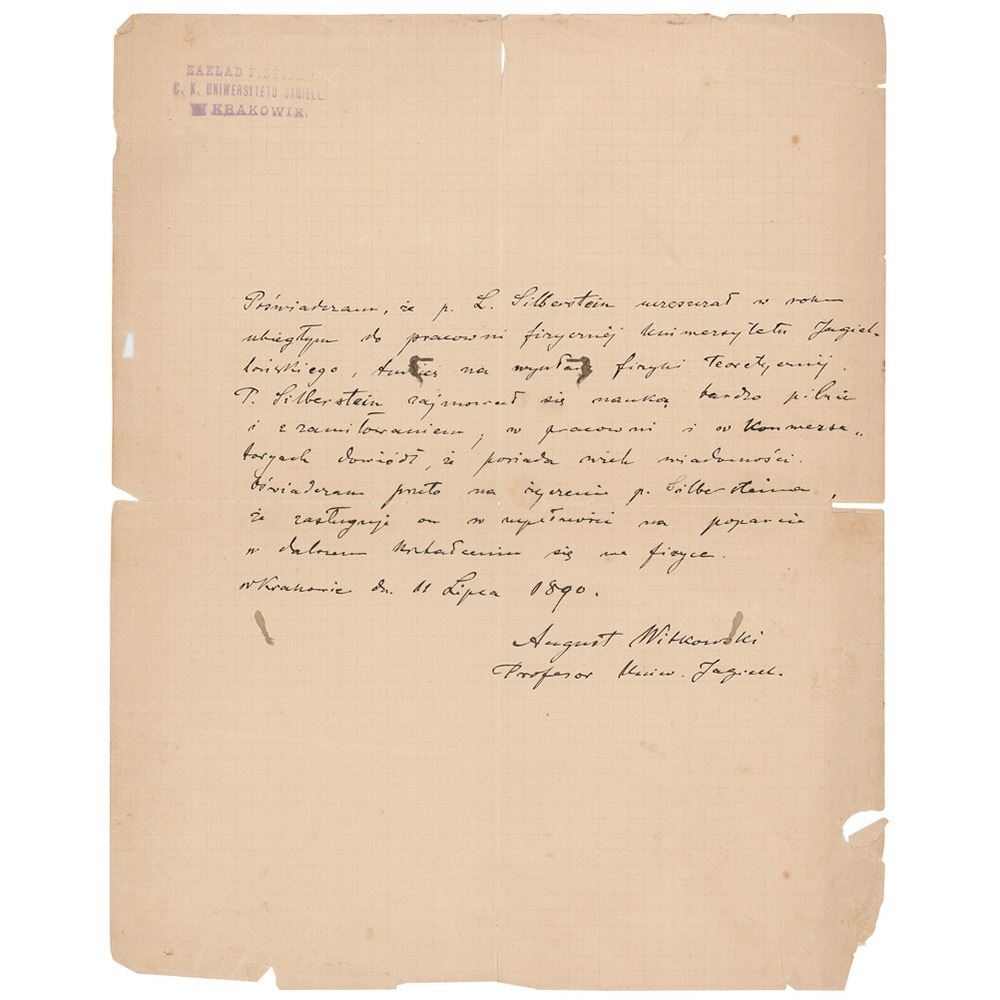 ZAKŁAD FIZYCZNY
C. K. UNIWERSYTETU JAGIELL.
W KRAKOWIE.
Poświadczam, że p. L. Silberstein uczęszczał w roku
ubiegłym do pracowni fizycznéj Uniwersytetu Jagiel-
lońskiego, tudzież na wykłady fizyki teoretycznéj.
P. Silberstein zajmował się nauką bardzo pilnie
i z zamiłowaniem, w pracowni i w Konwersa„
toryach dowiódł, że posiada wiele wiadomości.
Oświadczam przeto na życzenie p. Silbersteina,
że zasługuje on w zupełności na poparcie
w dalszem kształceniu się we fizyce.
w Krakowie dn. 11 Lipca 1890.
August Witkowski
Profesor Uniw. Jagiell.